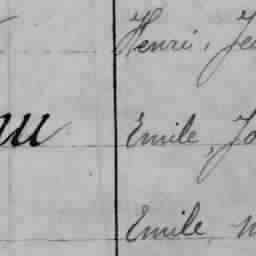 Henri, Je
Emile, Jo
Emile,